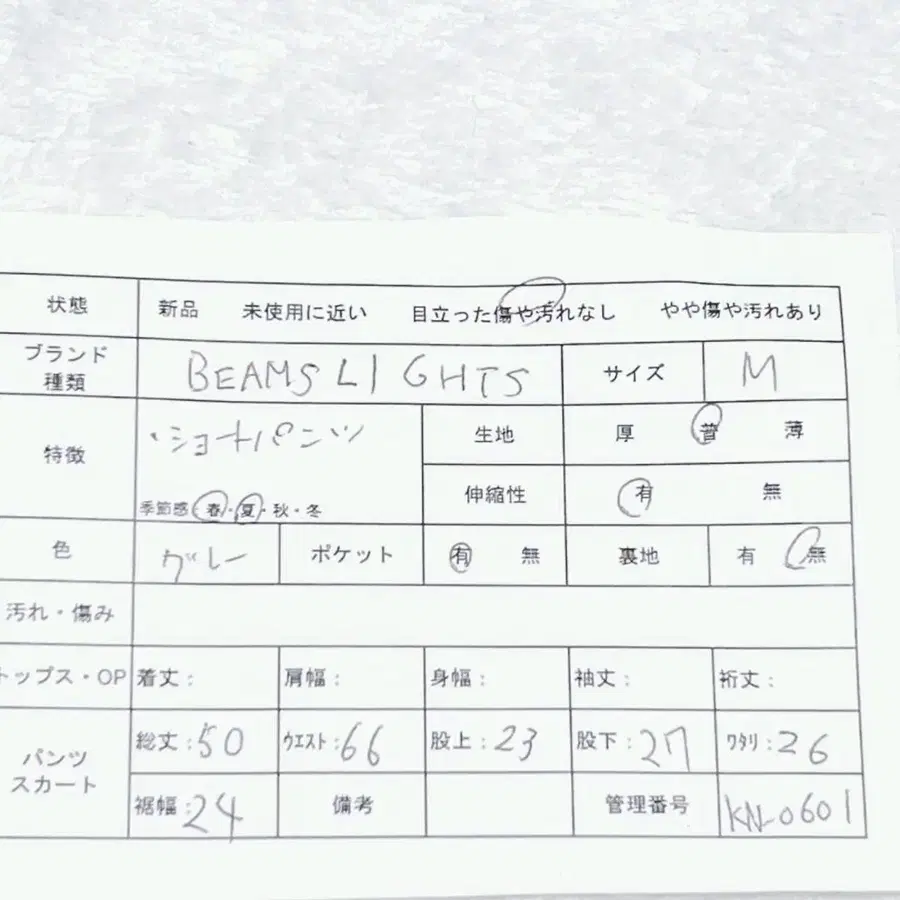 状態 新品 未使用に近い 目立った傷や汚れなし やや傷や汚れあり
ブランド
種類
BEAMS LIGHTS サイズ M
特徴
・ショートパンツ
季節感:春・夏・秋・冬
生地 厚 普 薄
伸縮性 有 無
色 グレー ポケット 有 無 裏地 有 無
汚れ・傷み
トップス・OP 着丈: 肩幅: 身幅: 袖丈: 裄丈:
パンツ
スカート
総丈:50 ウエスト:66 股上:23 股下:27 ワタリ:26
裾幅:24 備考 管理番号 KN-0601